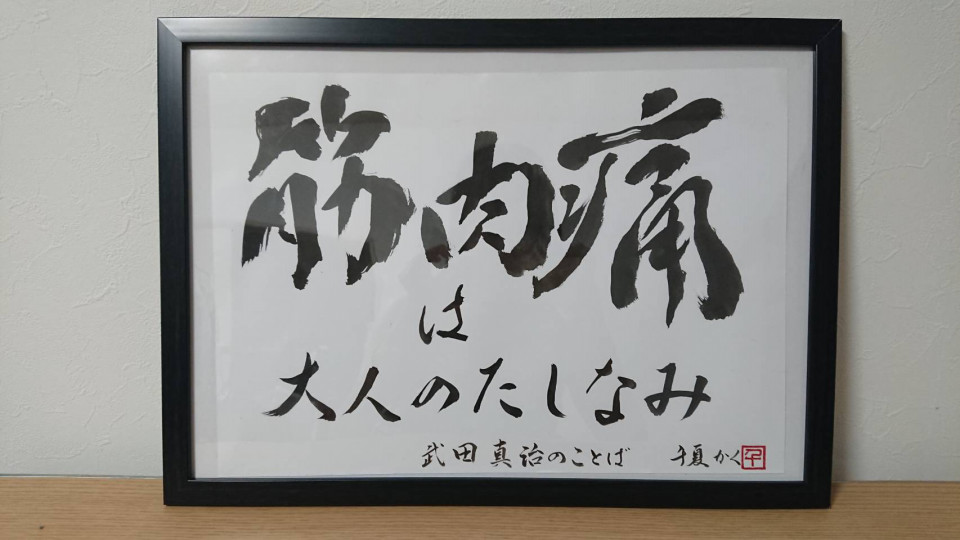 筋肉痛
は
大人のたしなみ
武田真治のことば 千夏かく
千